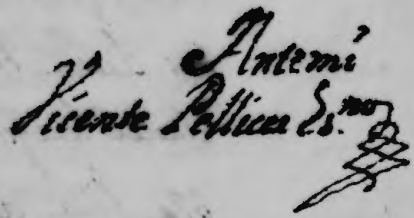 Antemi
Vicente Pellicer Es.no